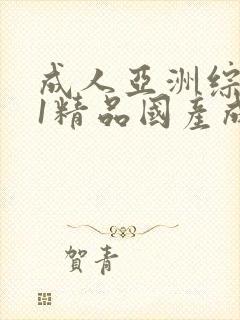 成人亞洲綜
1精品國產成
賀青